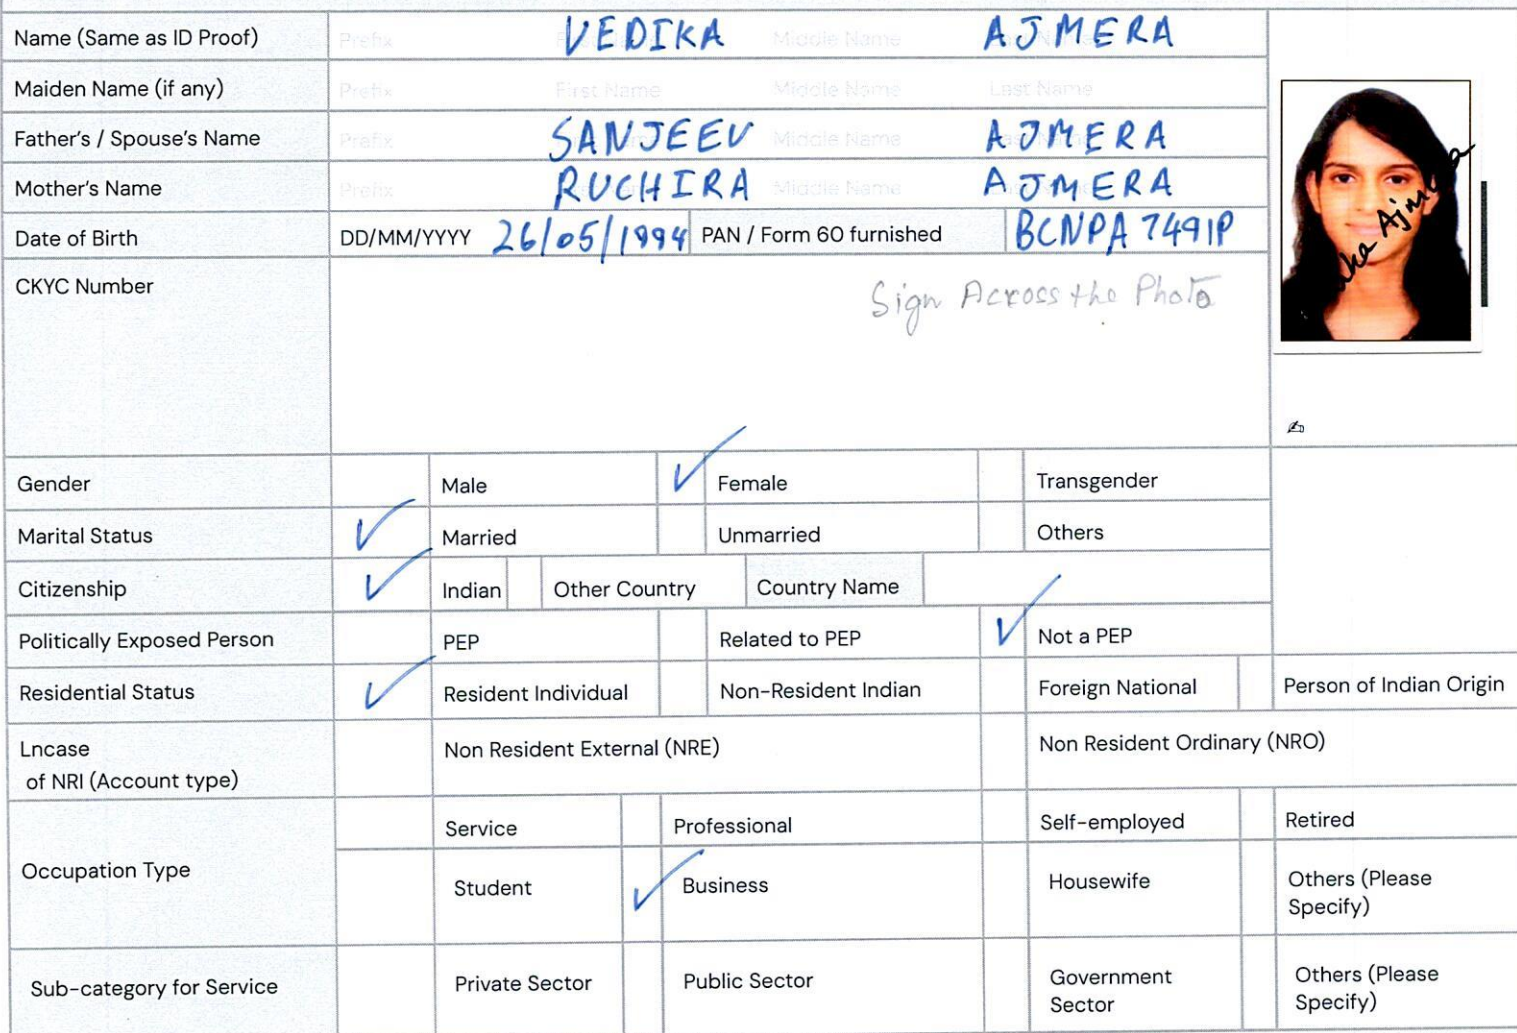 Name (Same as ID Proof) Prefix VEDIKA Middle Name AJMERA
Maiden Name (if any) Prefix First Name Middle Name Last Name
Father's / Spouse's Name Prefix SANJEEV Middle Name AJMERA
Mother's Name Prefix RUCHIRA Middle Name AJMERA
Date of Birth DD/MM/YYYY 26/05/1994 PAN / Form 60 furnished BCNPA 7491P
CKYC Number
Sign Across the Photo
Gender Male ✓ Female Transgender
Marital Status ✓ Married Unmarried Others
Citizenship ✓ Indian Other Country Country Name
Politically Exposed Person PEP Related to PEP ✓ Not a PEP
Residential Status ✓ Resident Individual Non-Resident Indian Foreign National Person of Indian Origin
Lncase Non Resident External (NRE) Non Resident Ordinary (NRO)
of NRI (Account type)
Service Professional Self-employed Retired
Occupation Type
Student ✓ Business Housewife Others (Please
Specify)
Sub-category for Service Private Sector Public Sector Government Others (Please
Sector Specify)